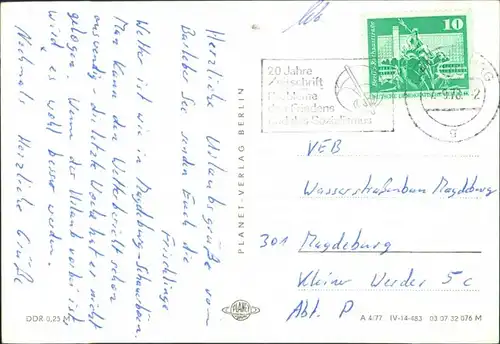 Herzliche Urlaubsgrüße vom
Barleber See senden Euch die
Frischlinge
Wetter ist wie in Magdeburg – Schaudern.
Man kann den Wetterbericht schon
auswendig – die letzte Woche hat er nicht
gelogen. Wenn der Urlaub vorbei ist,
wird es wohl besser werden.
Nochmals Herzliche Grüße
DDR 0,25 M
PLANET-VERLAG BERLIN
PLANET
20 Jahre
Zeitschrift
Probleme
des Friedens
und des Sozialismus
10
Berlin, Rathausstraße
VEB
Wasserstraßenbau Magdeburg
301 Magdeburg
Kleiner Werder 5c
Abt. P
A 4/77 IV-14-483 03 07 32 076 M